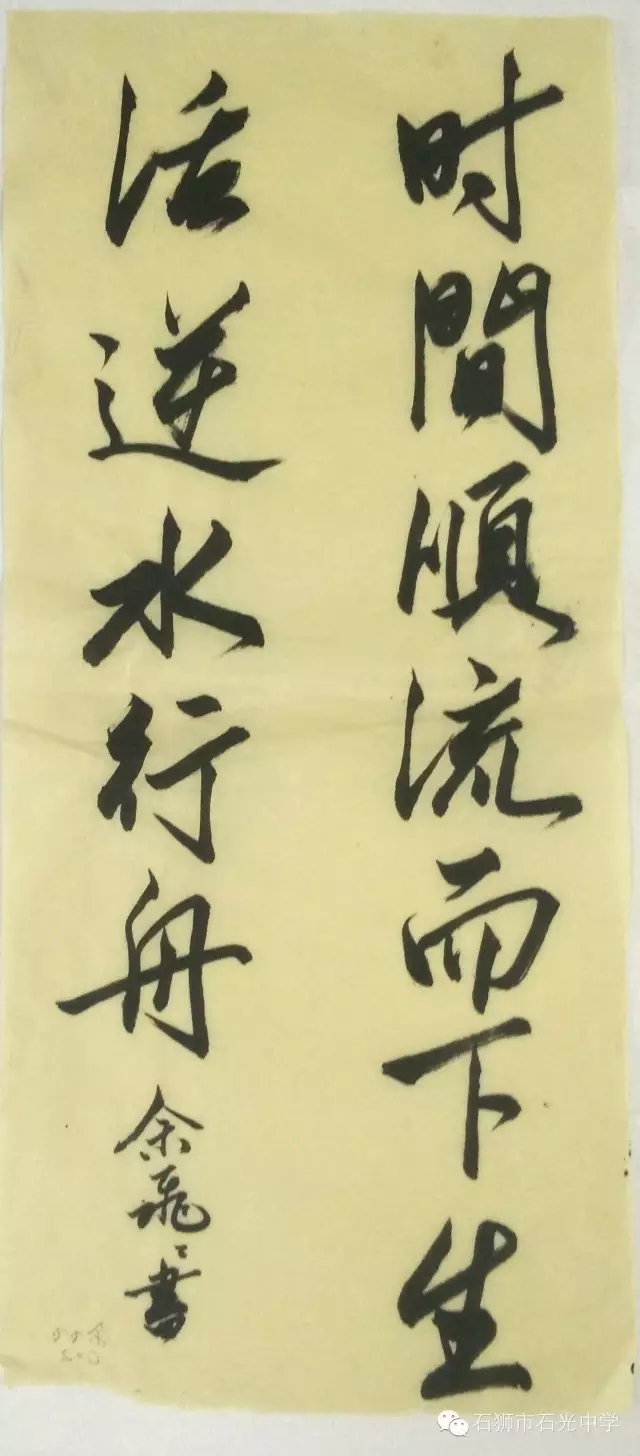 时間順流而下生
活逆水行舟
余飛飛書
石狮市石光中学